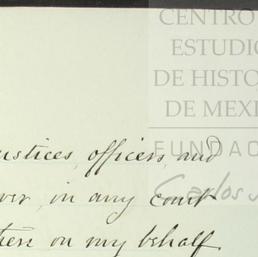 CENTRO
ESTUDIO
DE HISTO
DE MEXI
FUNDAC
Carlos
ustices, officers, and
ver, in any court
on my behalf